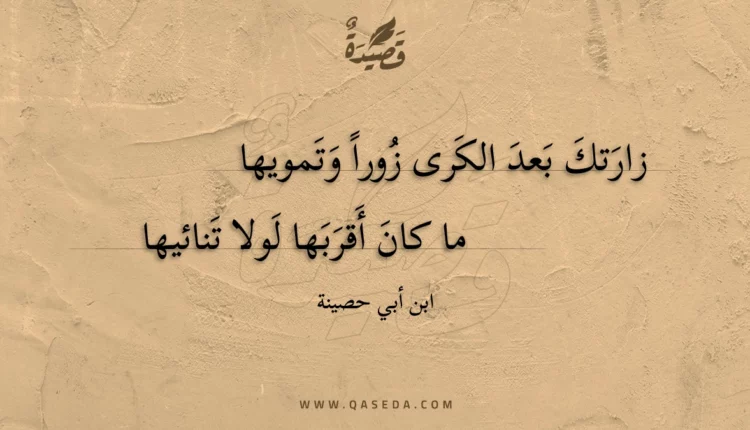 قَصِيدَةٌ
زارَتكَ بَعدَ الكَرى زُوراً وَتَمويها
ما كانَ أَقرَبَها لَولا تَنائيها
ابن أبي حصينة
WWW.QASEDA.COM